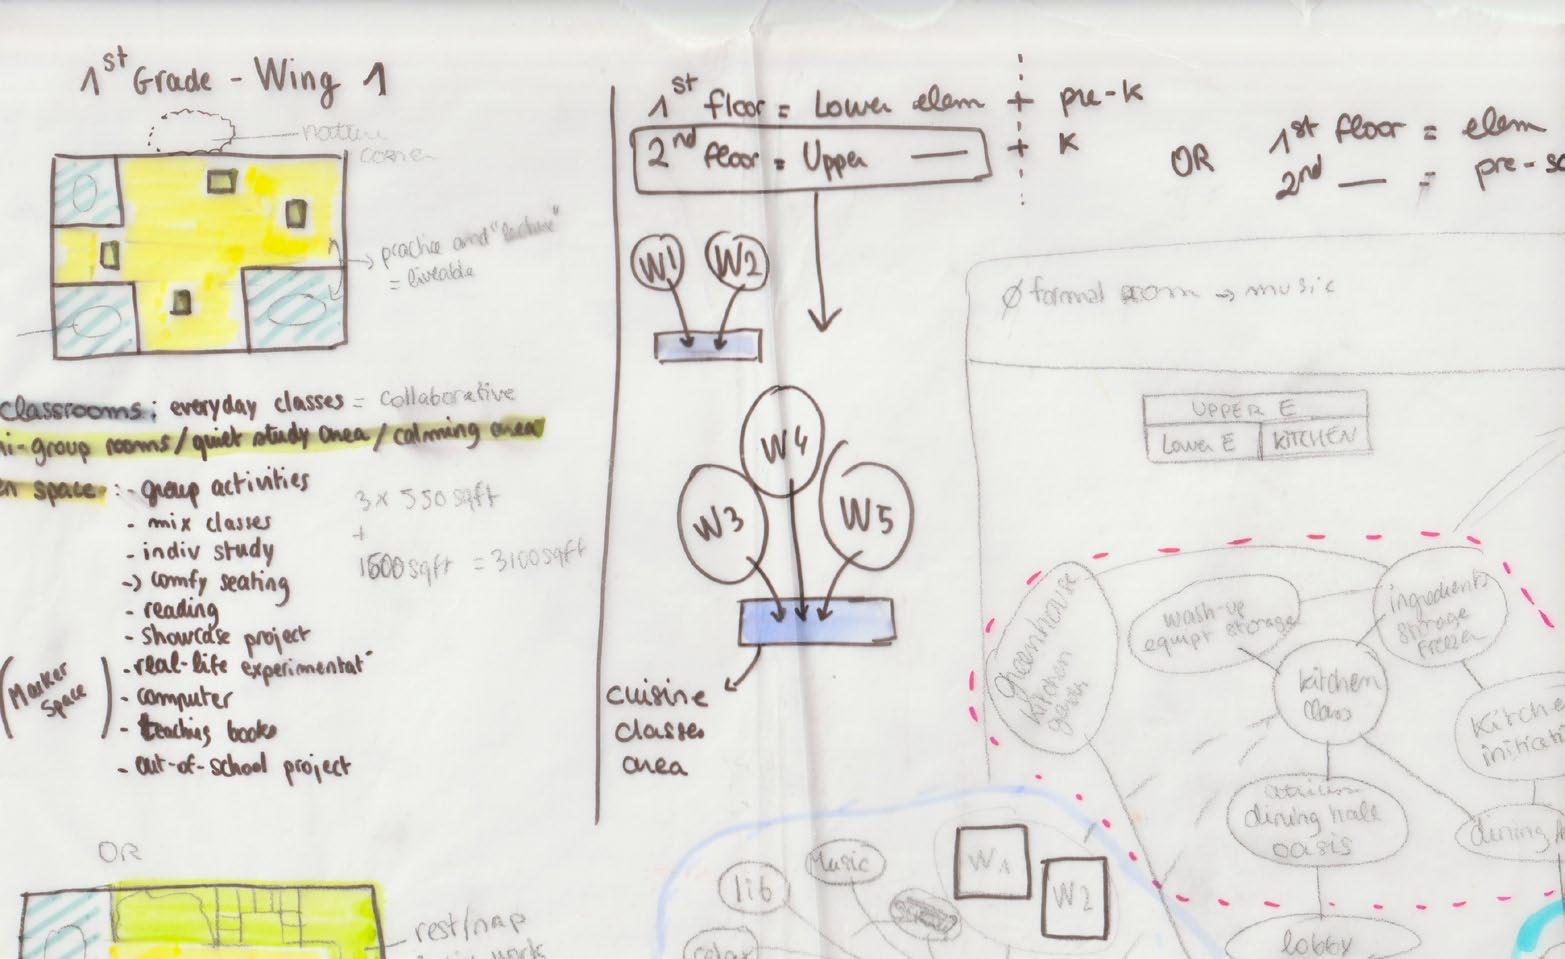 1st Grade - Wing 1
nature
corner
practice and "lecture"
= liveable
classrooms: everyday classes = collaborative
i-group rooms/quiet study area/calming area
en space: - group activities
- mix classes
- indiv study
-> comfy seating
- reading
- showcase project
- real-life experimentat°
- computer
- teaching books
- out-of-school project
(Marker
space)
3 x 550 sqft
+
1500 sqft = 3100 sqft
OR
rest/nap
1st floor = Lower elem + pre-k
2nd floor = Upper — + k
OR
1st floor = elem
2nd — = pre-sc
W1 W2
W4
W3 W5
cuisine
classes
area
Ø formal room → music
UPPER E
Lower E KITCHEN
greenhouse
kitchen
garden
wash-up
equipt storage
ingredients
storage
Freezer
kitchen
class
Kitche
initiati
atrium
dining hall
oasis
dining
lobby
Music
lib
W1
W2